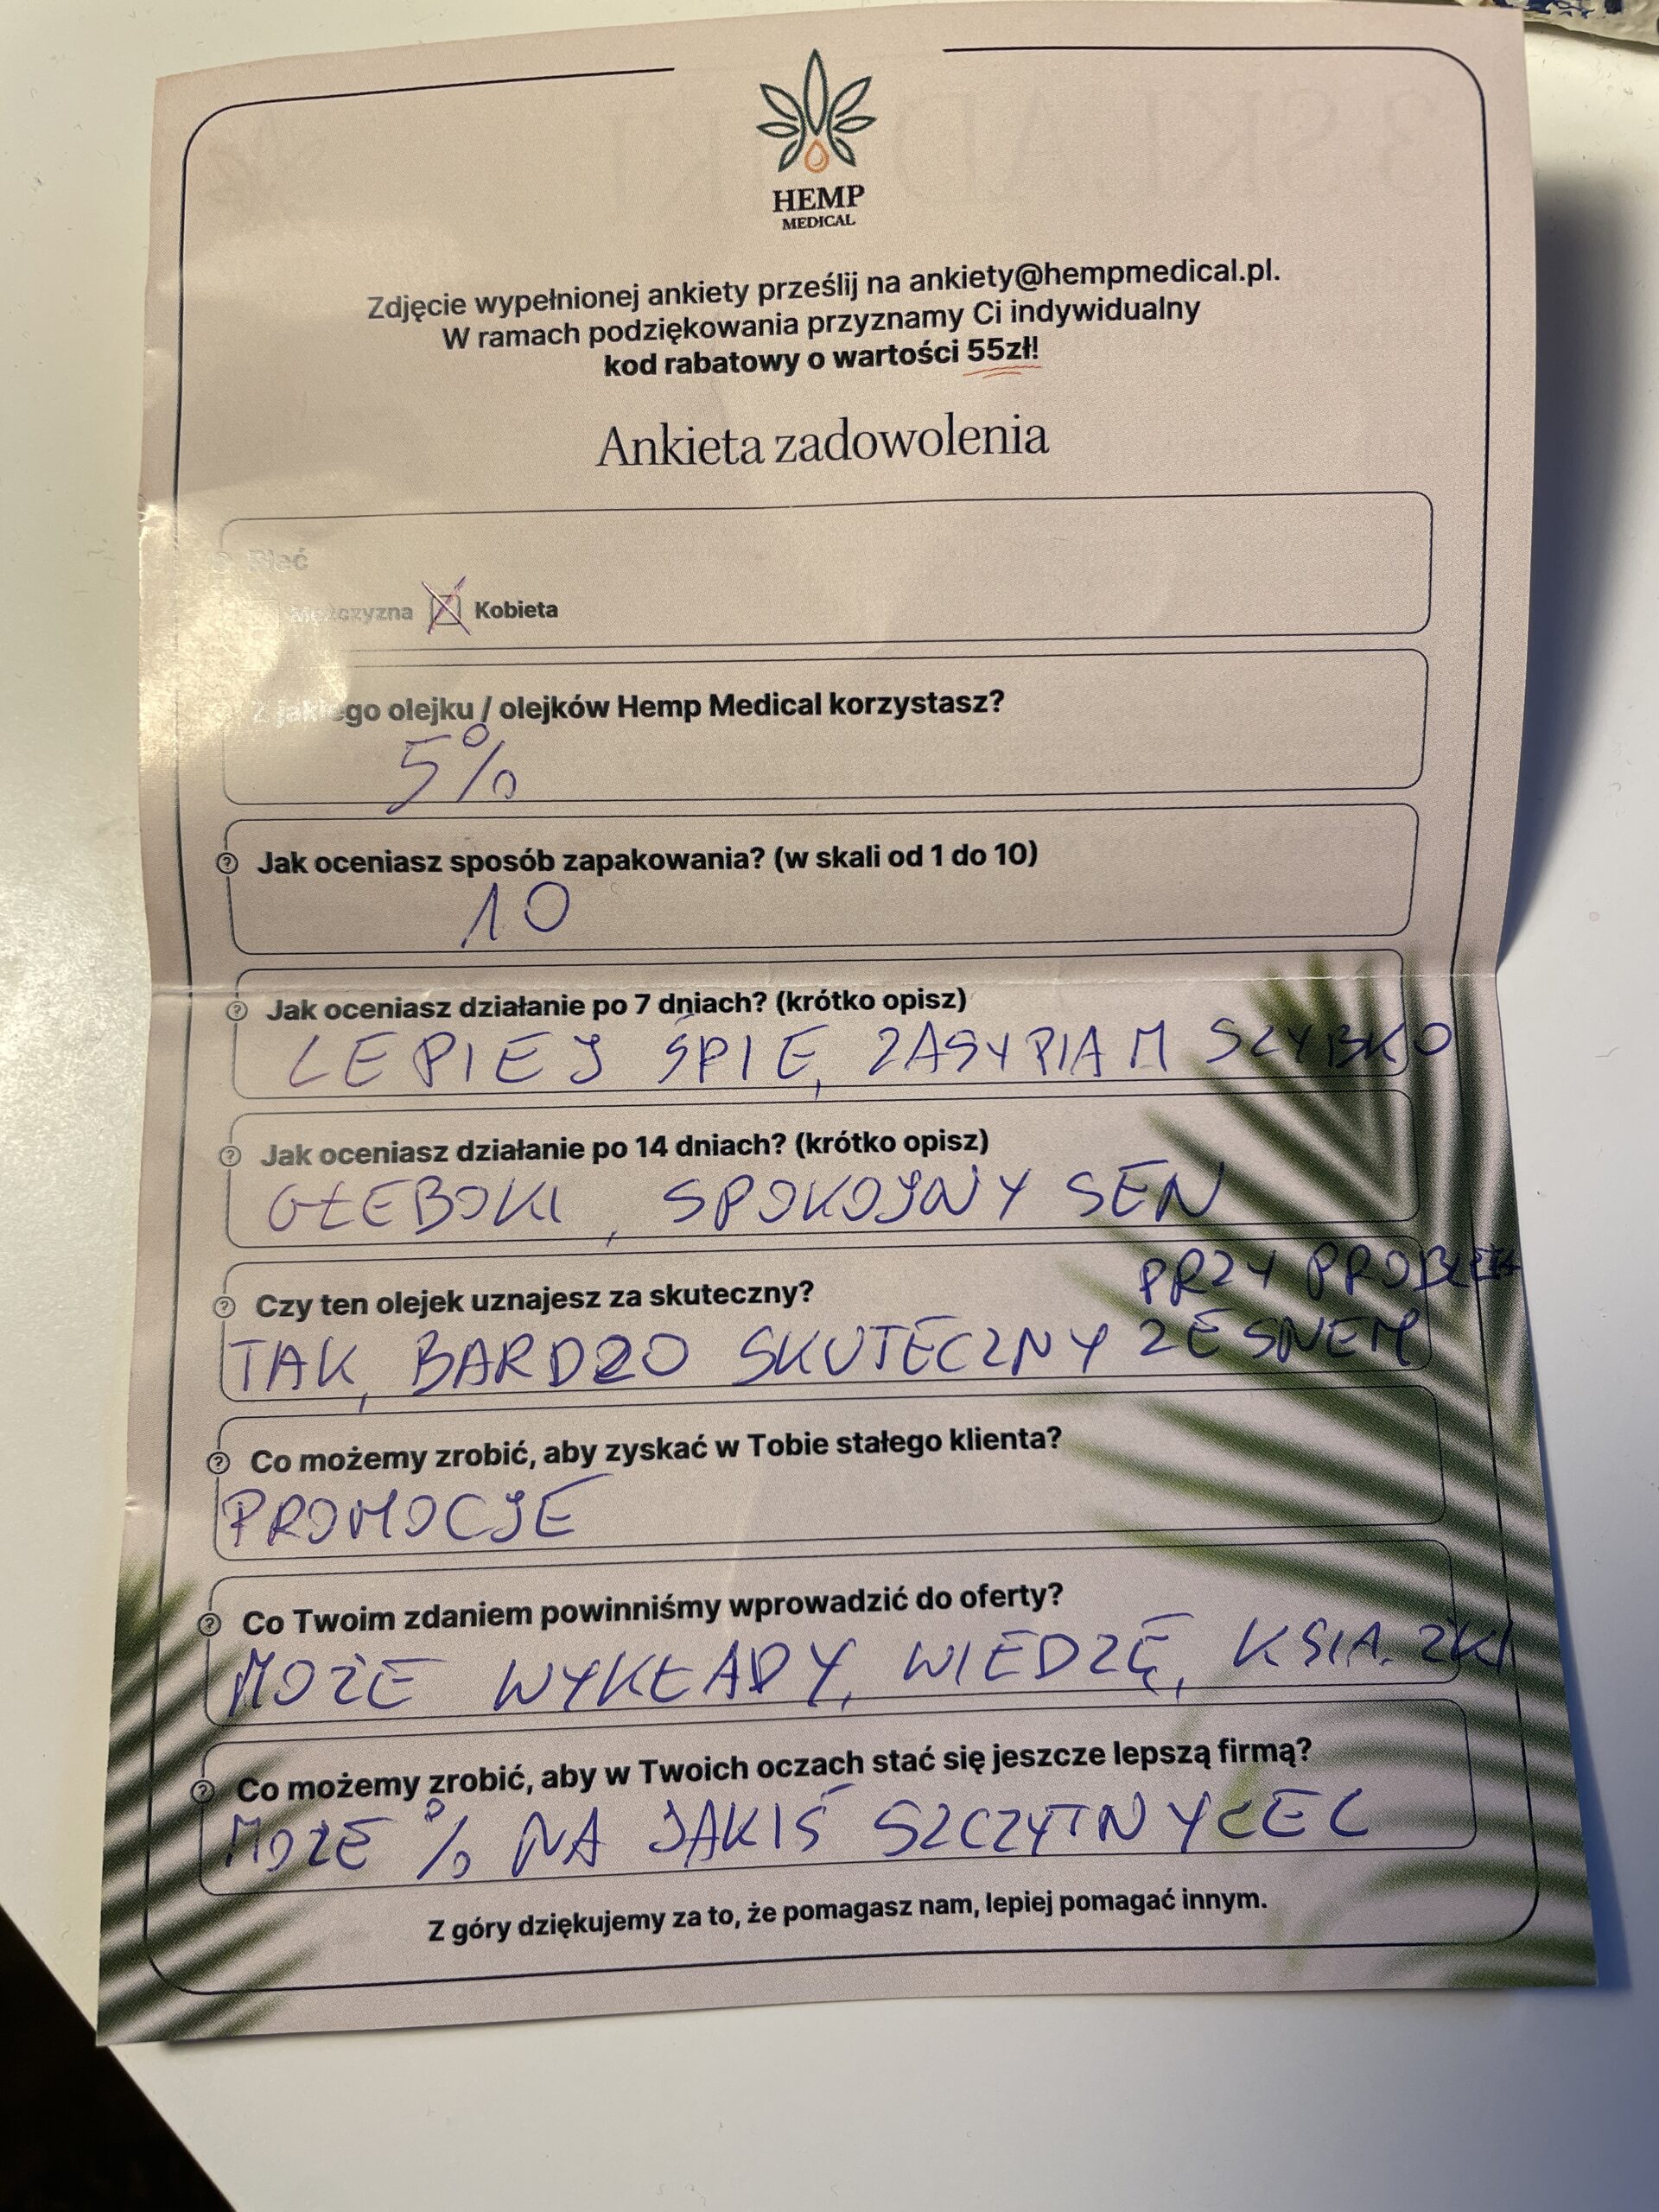 HEMP
MEDICAL
Zdjęcie wypełnionej ankiety prześlij na ankiety@hempmedical.pl.
W ramach podziękowania przyznamy Ci indywidualny
kod rabatowy o wartości 55zł!
Ankieta zadowolenia
Płeć
Mężczyzna Kobieta
Z jakiego olejku / olejków Hemp Medical korzystasz?
5%
Jak oceniasz sposób zapakowania? (w skali od 1 do 10)
10
Jak oceniasz działanie po 7 dniach? (krótko opisz)
LEPIEJ ŚPIĘ, ZASYPIAM SZYBKO
Jak oceniasz działanie po 14 dniach? (krótko opisz)
GŁEBOKI, SPOKOJNY SEN
Czy ten olejek uznajesz za skuteczny?
PRZY
TAK, BARDZO SKUTECZNY ZE SNEM
Co możemy zrobić, aby zyskać w Tobie stałego klienta?
PROMOCJE
Co Twoim zdaniem powinniśmy wprowadzić do oferty?
MOŻE WYKŁADY, WIEDZĘ, KSIĄŻKI
Co możemy zrobić, aby w Twoich oczach stać się jeszcze lepszą firmą?
MOŻE % NA JAKIŚ SZCZYTNY CEL
Z góry dziękujemy za to, że pomagasz nam, lepiej pomagać innym.